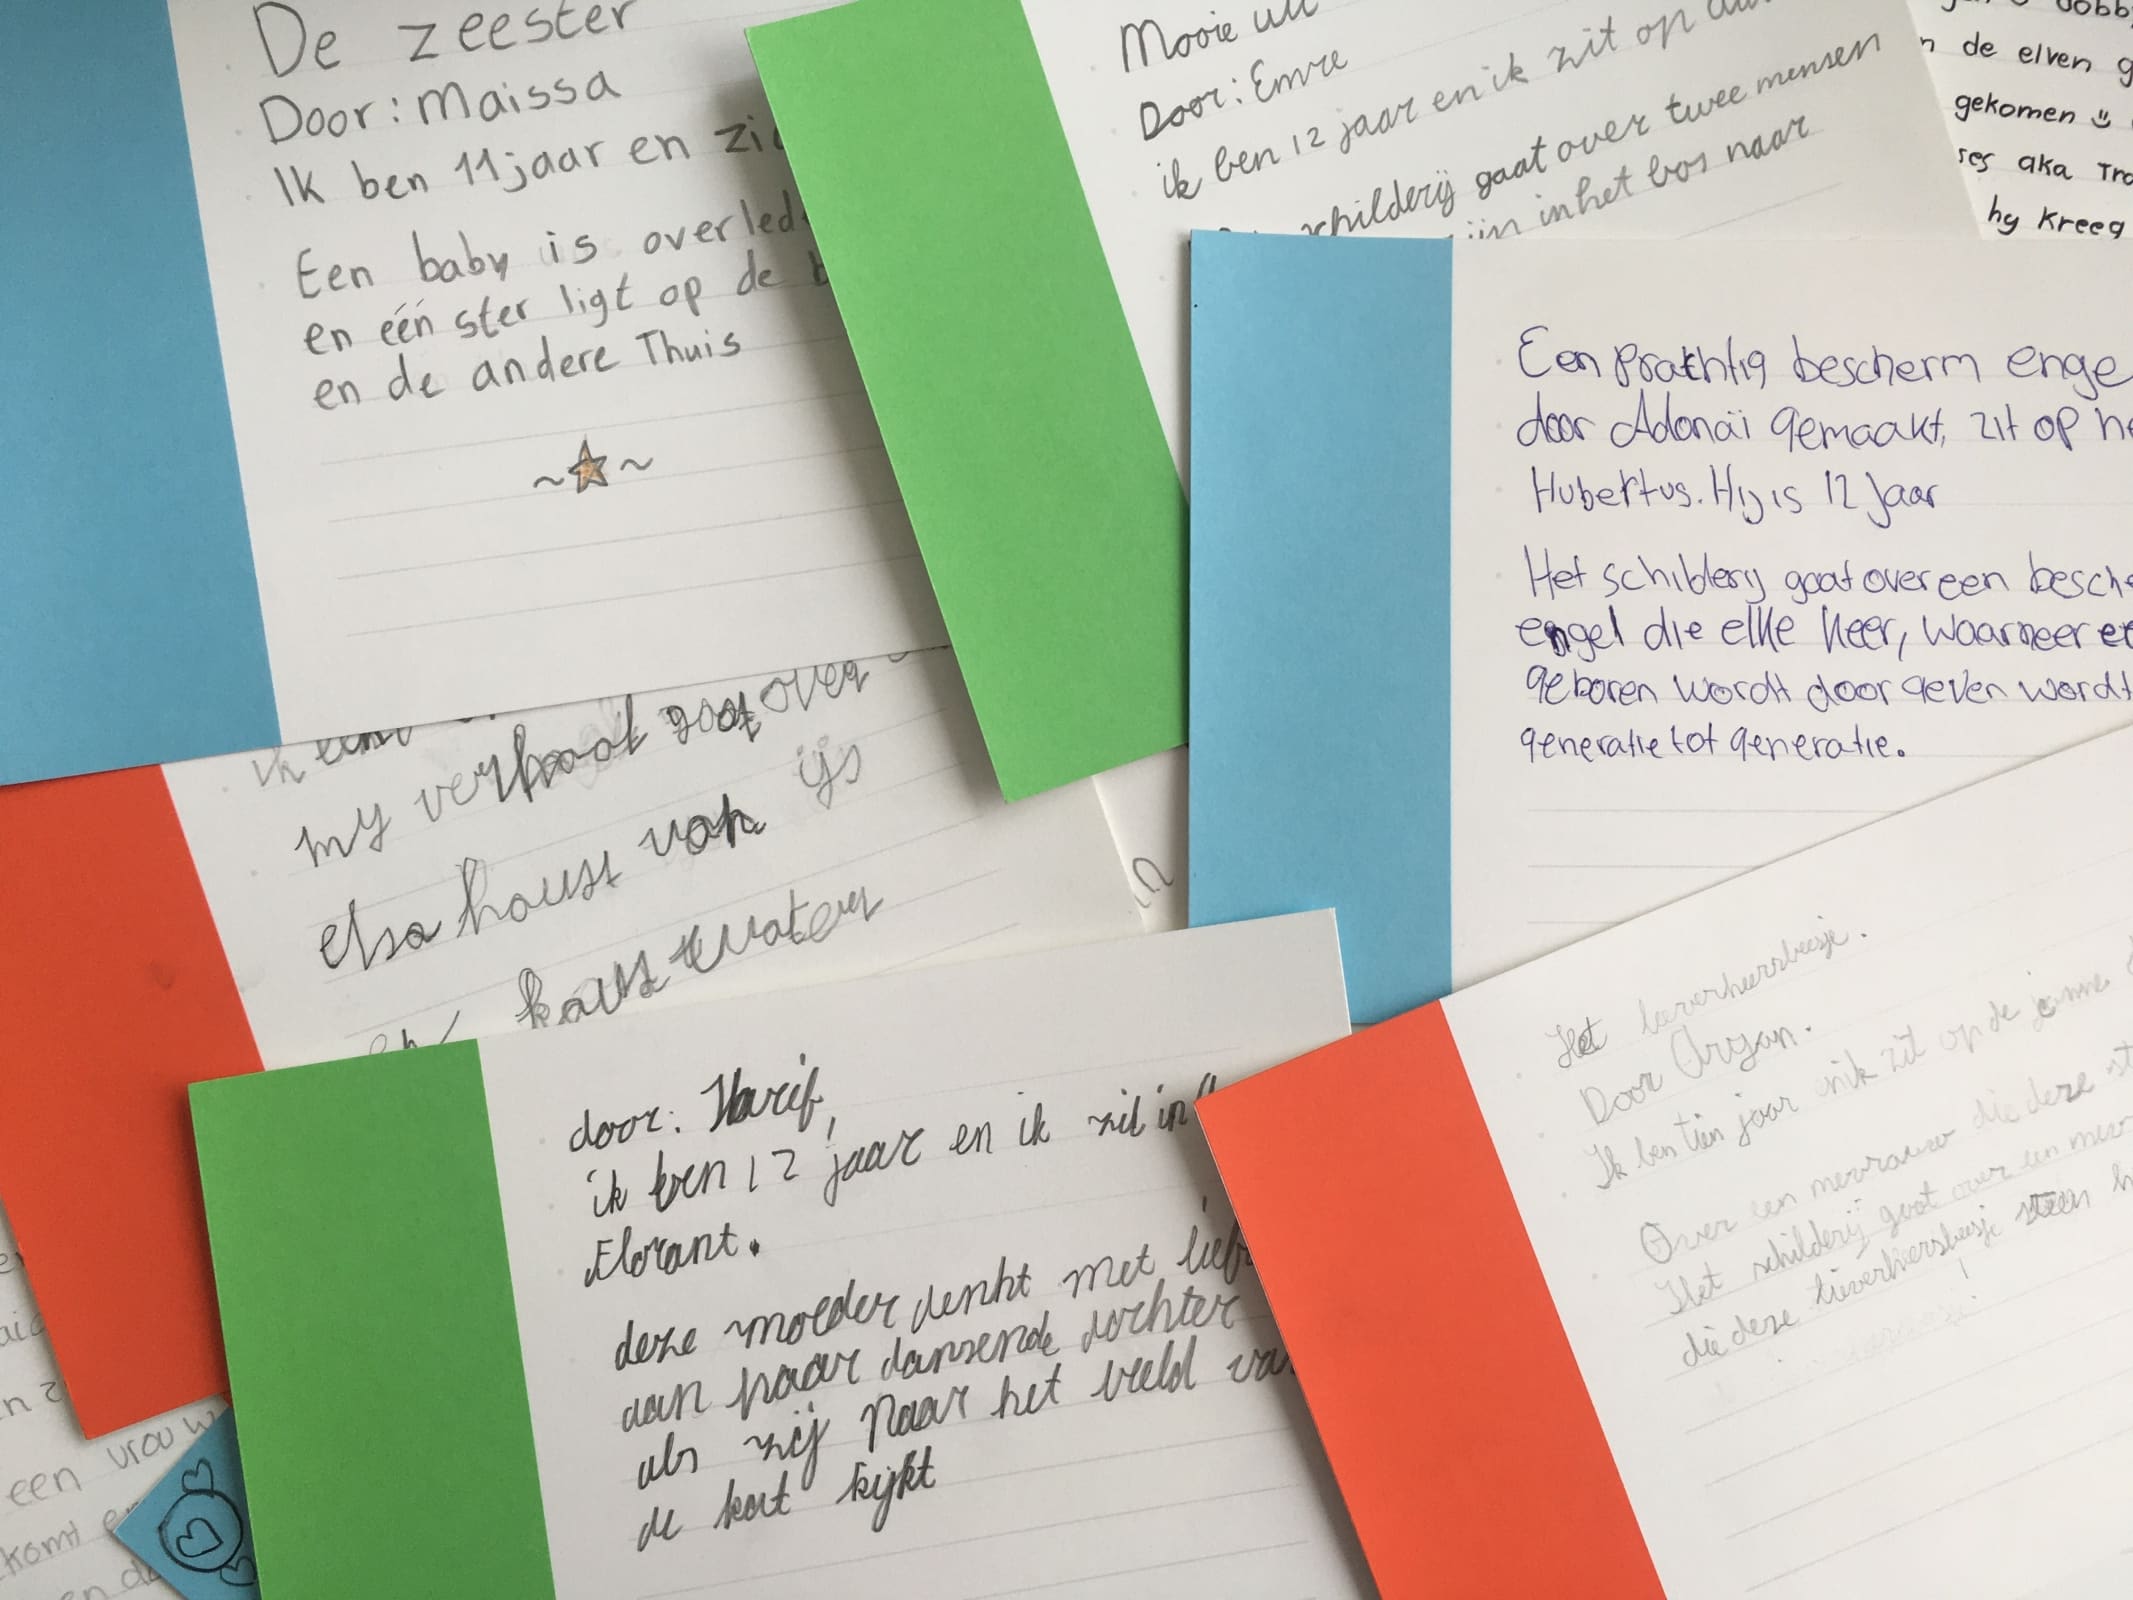 De zeester
Door: Maissa
Ik ben 11 jaar en
Een baby is
en één ster ligt op de
en de andere Thuis
Mooie
Door: Emre
ik ben 12 jaar en ik zit op
schilderij gaat over twee mensen
in het bos naar
de elven
gekomen
aka
hy kreeg
Een prachtig bescherm
door Adonaï gemaakt, zit op
Hubertus. Hij is 12 jaar
Het schildery gaat over een
engel die elke keer, waarneer
geboren wordt door geven wordt
generatie tot generatie.
my verhaal gaat over
elsa houst van ijs
houst water
door:
ik ben 12 jaar en ik zit in
Florant.
deze moeder denkt met
aan haar dansende dochter
als zij naar het beeld
de kat kijkt
Het
Door Aryan.
Ik ben tien jaar en ik zit op de
Over een die deze
Het schilderij gaat over een
die deze lieverheersbeesje
een vrouw
komt